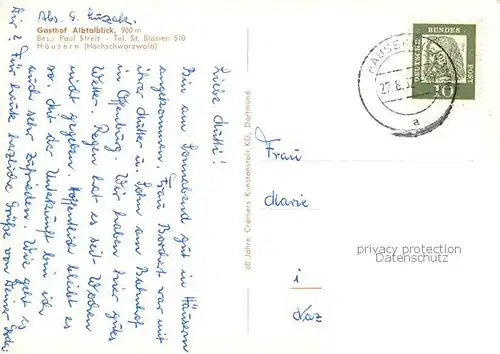 Abs. G.
Gasthof Albtalblick, 900 m
Bes.: Paul Streit - Tel. St. Blasien 510
Häusern (Hochschwarzwald)
Liebe Mutti!
Bin am Sonnabend gut in Häusern
angekommen. Frau Bordest war mit
ihrer Mutter u. Sohn am Bahnhof
in Offenburg. Wir haben hier gutes
Wetter. Regen hat es seit Wochen
nicht gegeben. Hoffentlich bleibt es
so. Mit der Unterkunft bin ich
auch sehr zufrieden. Wie geht es
Dir? Für heute herzliche Grüße von Deiner
60 Jahre Cramers Kunstanstalt KG, Dortmund
HÄUSERN
27.8.
a
DEUTSCHE
BUNDES
POST
10
Frau
Marie
privacy protection
Datenschutz